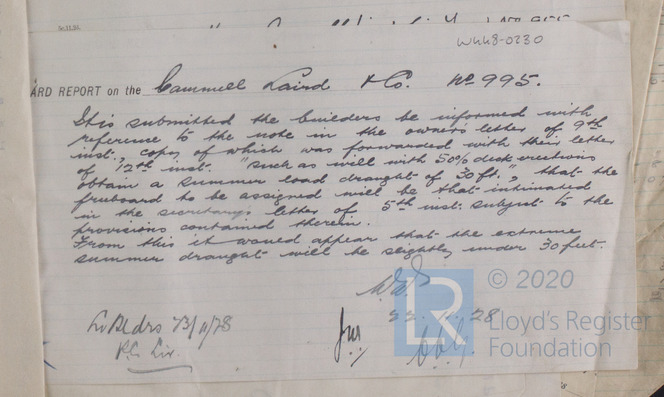 W448-0230
ARD REPORT on the Cammell Laird & Co. No 995.
It is submitted the builders be informed with
reference to the note in the owners letter of 9th
inst., copy of which was forwarded with their letter
of 12th inst. "such as will with 50% deck erections
obtain a summer load draught of 30 ft.", that the
freeboard to be assigned will be that intimated
in the secretary's letter of 5th inst. subject to the
provisions contained therein.
From this it would appear that the extreme
summer draught will be slightly under 30 feet.
28
© 2020
LR
Lloyd's Register
Foundation